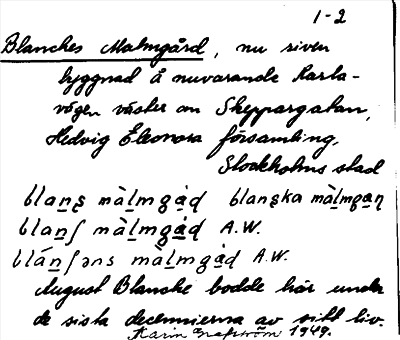 1-2
Blanches Malmgård, nu riven
byggnad å nuvarande Karla-
vägen väster om Skeppargatan,
Hedvig Eleonora församling,
Stockholms stad
blanʂ màlmgåḍ blanʂka màlmgaṇ
blanʃ màlmgåḍ A.W.
blánʃəns màlmgåḍ A.W.
August Blanche bodde här under
de sista decennierna av sitt liv.
Karin 1949.